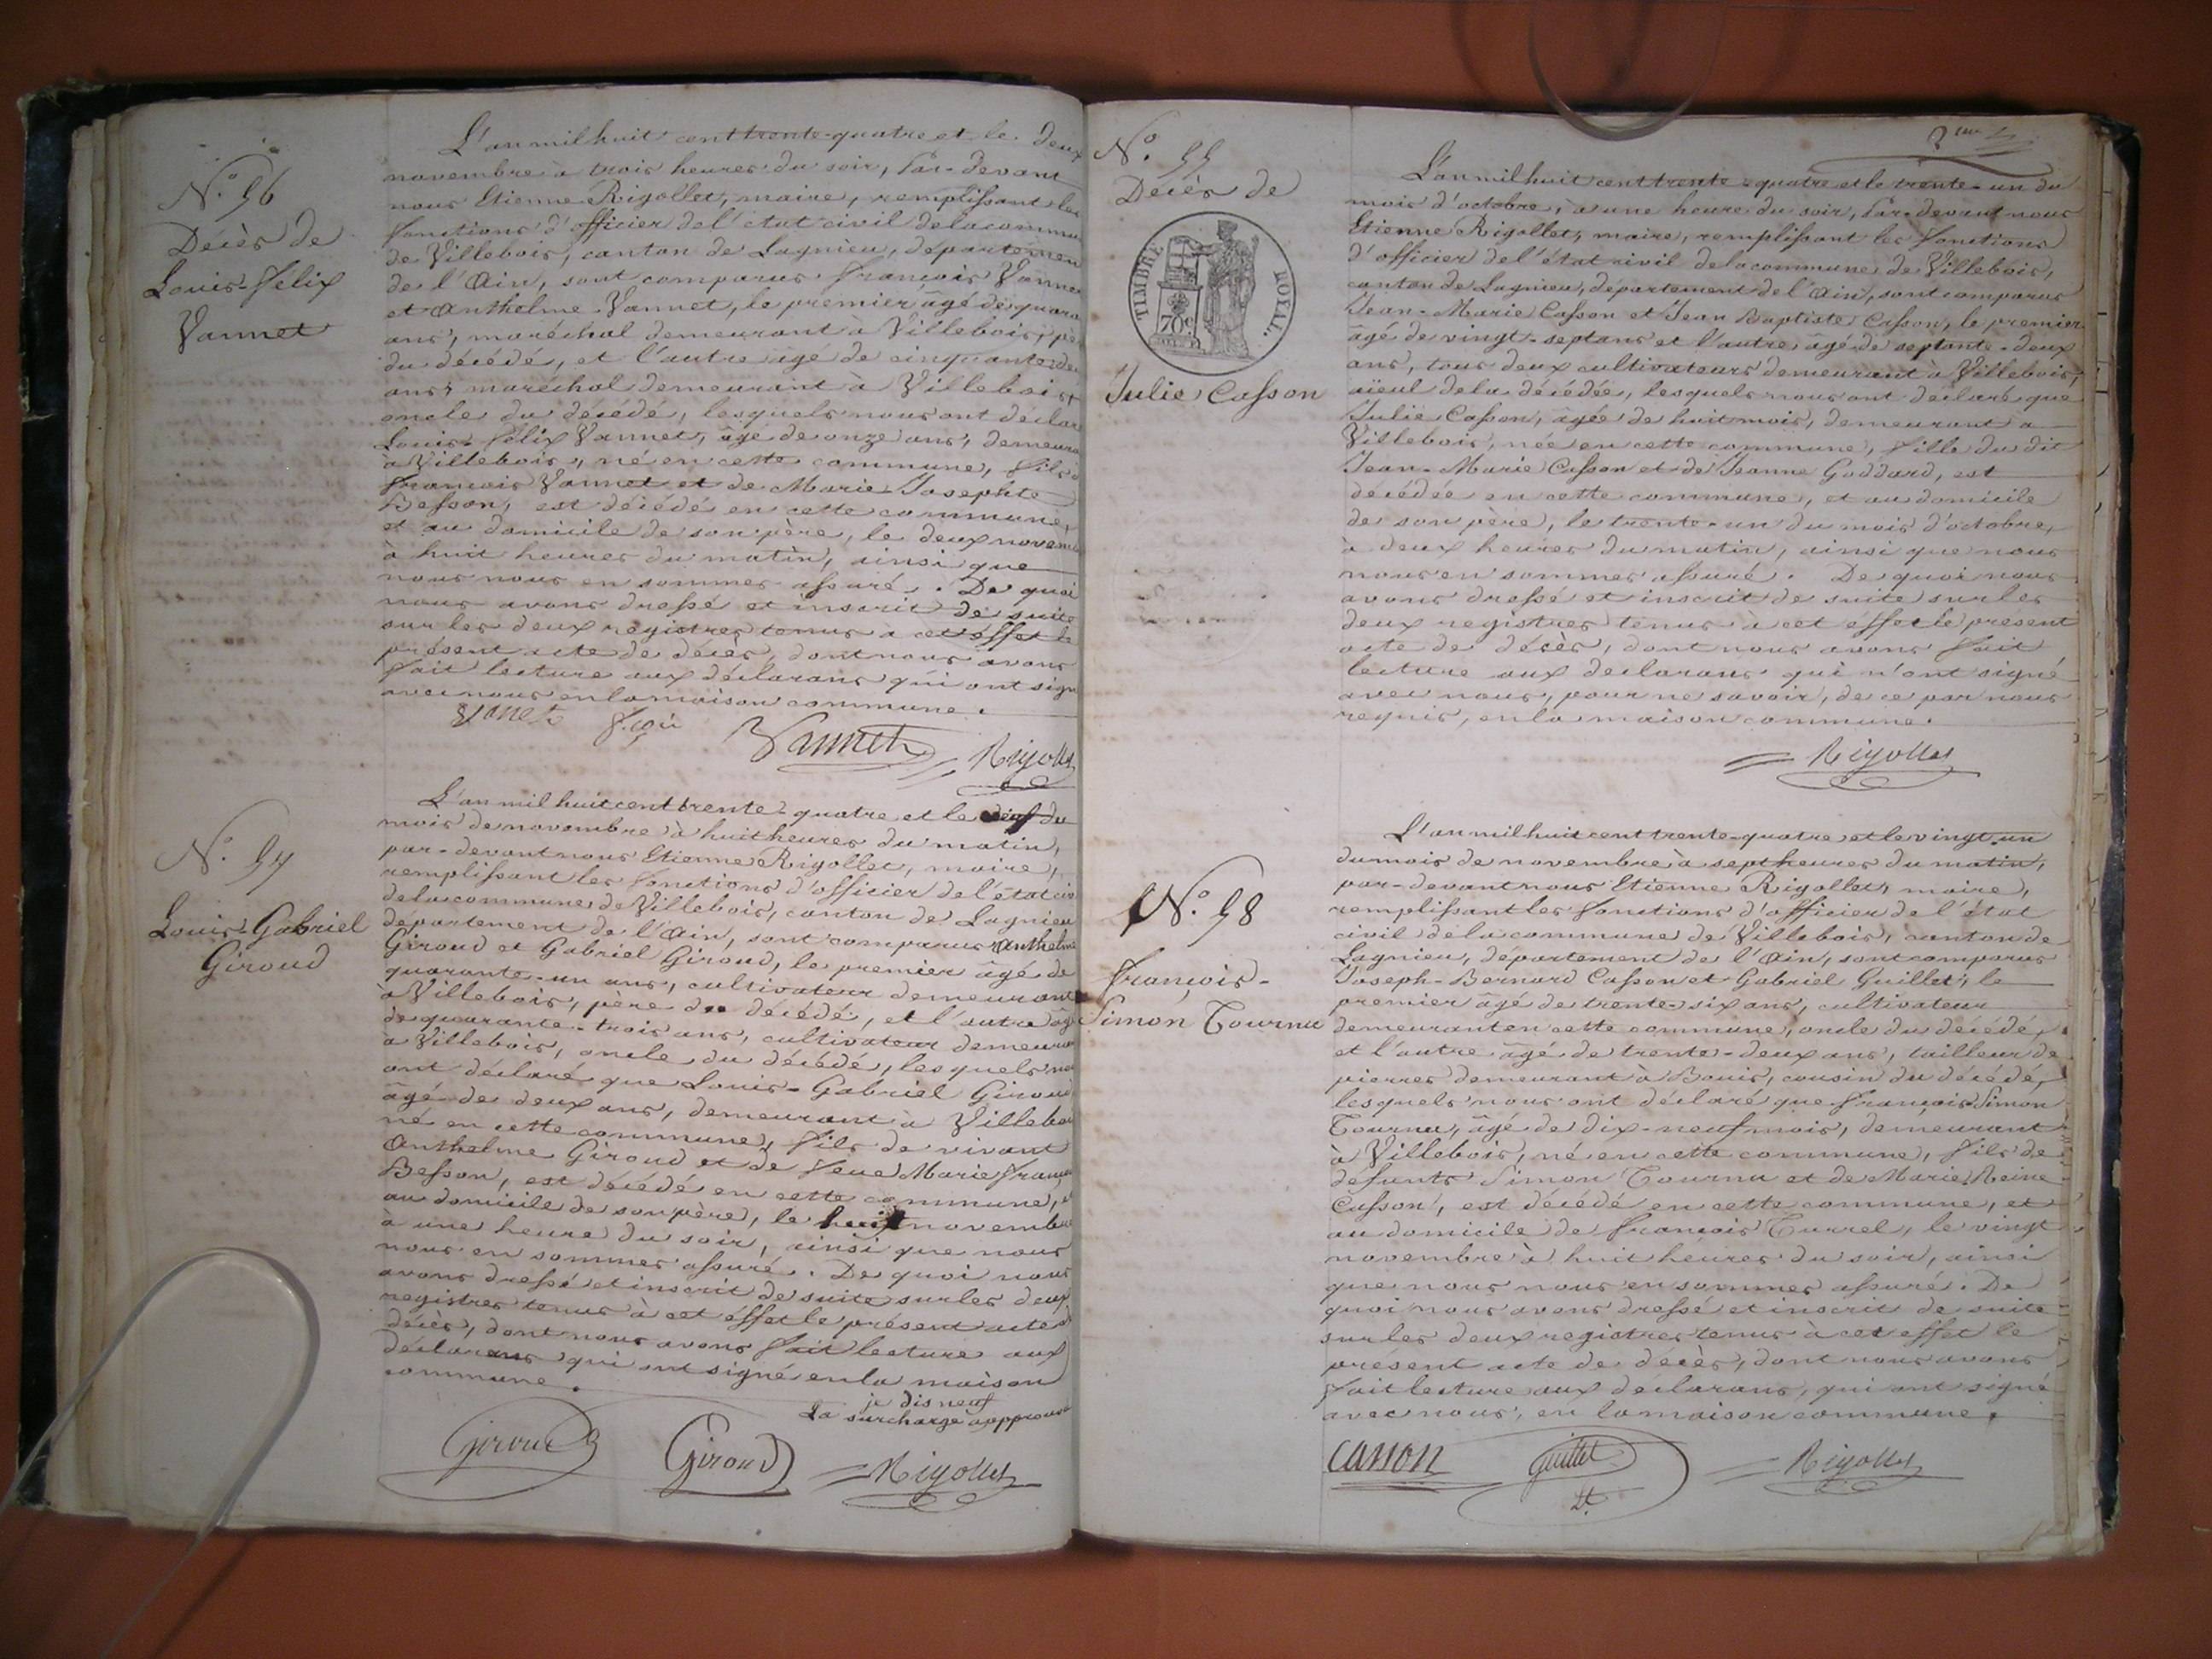 N.° 56
Décès de
Louis-Félix
Vannet
L'an mil huit cent trente-quatre et le deux
novembre à trois heures du soir, Par-devant
nous Etienne Rigollet, maire, remplissant les
fonctions d'officier de l'état civil de la commune
de Villebois, canton de Lagnieu, département
de l'Ain, sont comparus François Vannet
et Anthelme Vannet, le premier âgé de quara
ans, maréchal demeurant à Villebois, père
du décédé, et l'autre âgé de cinquante-deux
ans, maréchal demeurant à Villebois,
oncle du décédé, lesquels nous ont déclaré
Louis-Félix Vannet, âgé de onze ans, demeura
à Villebois, né en cette commune, fils d
François Vannet et de Marie-Josephte
Besson, est décédé en cette commune,
et au domicile de son père, le deux novem
à huit heures du matin, ainsi que
nous nous en sommes assuré. De quoi
nous avons dressé et inscrit de suite
sur les deux registres tenus à cet effet le
présent acte de décès, dont nous avons
fait lecture aux déclarans qui ont signé
avec nous en la maison commune.
Vannet Rigollet
N.° 57
Louis-Gabriel
Giroud
L'an mil huit cent trente-quatre et le neuf du
mois de novembre à huit heures du matin,
par-devant nous Etienne Rigollet, maire,
remplissant les fonctions d'officier de l'état civ
de la commune de Villebois, canton de Lagnieu
département de l'Ain, sont comparus Anthelme
Giroud et Gabriel Giroud, le premier âgé de
quarante-un ans, cultivateur demeurant
à Villebois, père du décédé, et l'autre âgé
de quarante-trois ans, cultivateur demeurant
à Villebois, oncle du décédé, lesquels nous
ont déclaré que Louis-Gabriel Giroud
âgé de deux ans, demeurant à Villebois
né en cette commune, fils de vivant
Anthelme Giroud et de feue Marie Franç
Besson, est décédé en cette commune, et
au domicile de son père, le huit novembre
à une heure du soir, ainsi que nous
nous en sommes assuré. De quoi nous
avons dressé et inscrit de suite sur les deux
registres tenus à cet effet le présent acte d
décès, dont nous avons fait lecture aux
déclarans qui ont signé en la maison
commune.
je dis neuf
La surcharge approuvée
Giroud Giroud Rigollet
N.° 55
Décès de
TIMBRE ROYAL.
70c
Julie Casson
L'an mil huit cent trente-quatre et le trente-un du
mois d'octobre, à une heure du soir, Par-devant nous
Etienne Rigollet, maire, remplissant les fonctions
d'officier de l'état civil de la commune de Villebois,
canton de Lagnieu, département de l'Ain, sont comparus
Jean-Marie Casson et Jean Baptiste Casson, le premier
âgé de vingt-sept ans et l'autre âgé de septante-deux
ans, tous deux cultivateurs demeurant à Villebois,
aïeul de la décédée, lesquels nous ont déclaré que
Julie Casson, âgée de huit mois, demeurant à
Villebois, née en cette commune, fille du dit
Jean-Marie Casson et de Jeanne Goddard, est
décédée en cette commune, et au domicile
de son père, le trente-un du mois d'octobre,
à deux heures du matin, ainsi que nous
nous en sommes assuré. De quoi nous
avons dressé et inscrit de suite sur les
deux registres tenus à cet effet le présent
acte de décès, dont nous avons fait
lecture aux déclarans qui n'ont signé
avec nous, pour ne savoir, de ce par nous
requis, en la maison commune.
Rigollet
N.° 58
François-
Simon Tournu
L'an mil huit cent trente-quatre et le vingt-un
du mois de novembre à sept heures du matin,
par-devant nous Etienne Rigollet, maire,
remplissant les fonctions d'officier de l'état
civil de la commune de Villebois, canton de
Lagnieu, département de l'Ain, sont comparus
Joseph-Bernard Casson et Gabriel Guillet, le
premier âgé de trente-six ans, cultivateur
demeurant en cette commune, oncle du décédé,
et l'autre âgé de trente-deux ans, tailleur de
pierres demeurant à Bouis, cousin du décédé,
lesquels nous ont déclaré que François-Simon
Tournu, âgé de dix-neuf mois, demeurant
à Villebois, né en cette commune, fils de
défunts Simon Tournu et de Marie Reine
Casson, est décédé en cette commune, et
au domicile de François Turrel, le vingt
novembre à huit heures du soir, ainsi
que nous nous en sommes assuré. De
quoi nous avons dressé et inscrit de suite
sur les deux registres tenus à cet effet le
présent acte de décès, dont nous avons
fait lecture aux déclarans, qui ont signé
avec nous, en la maison commune.
CASSON Guillet Rigollet